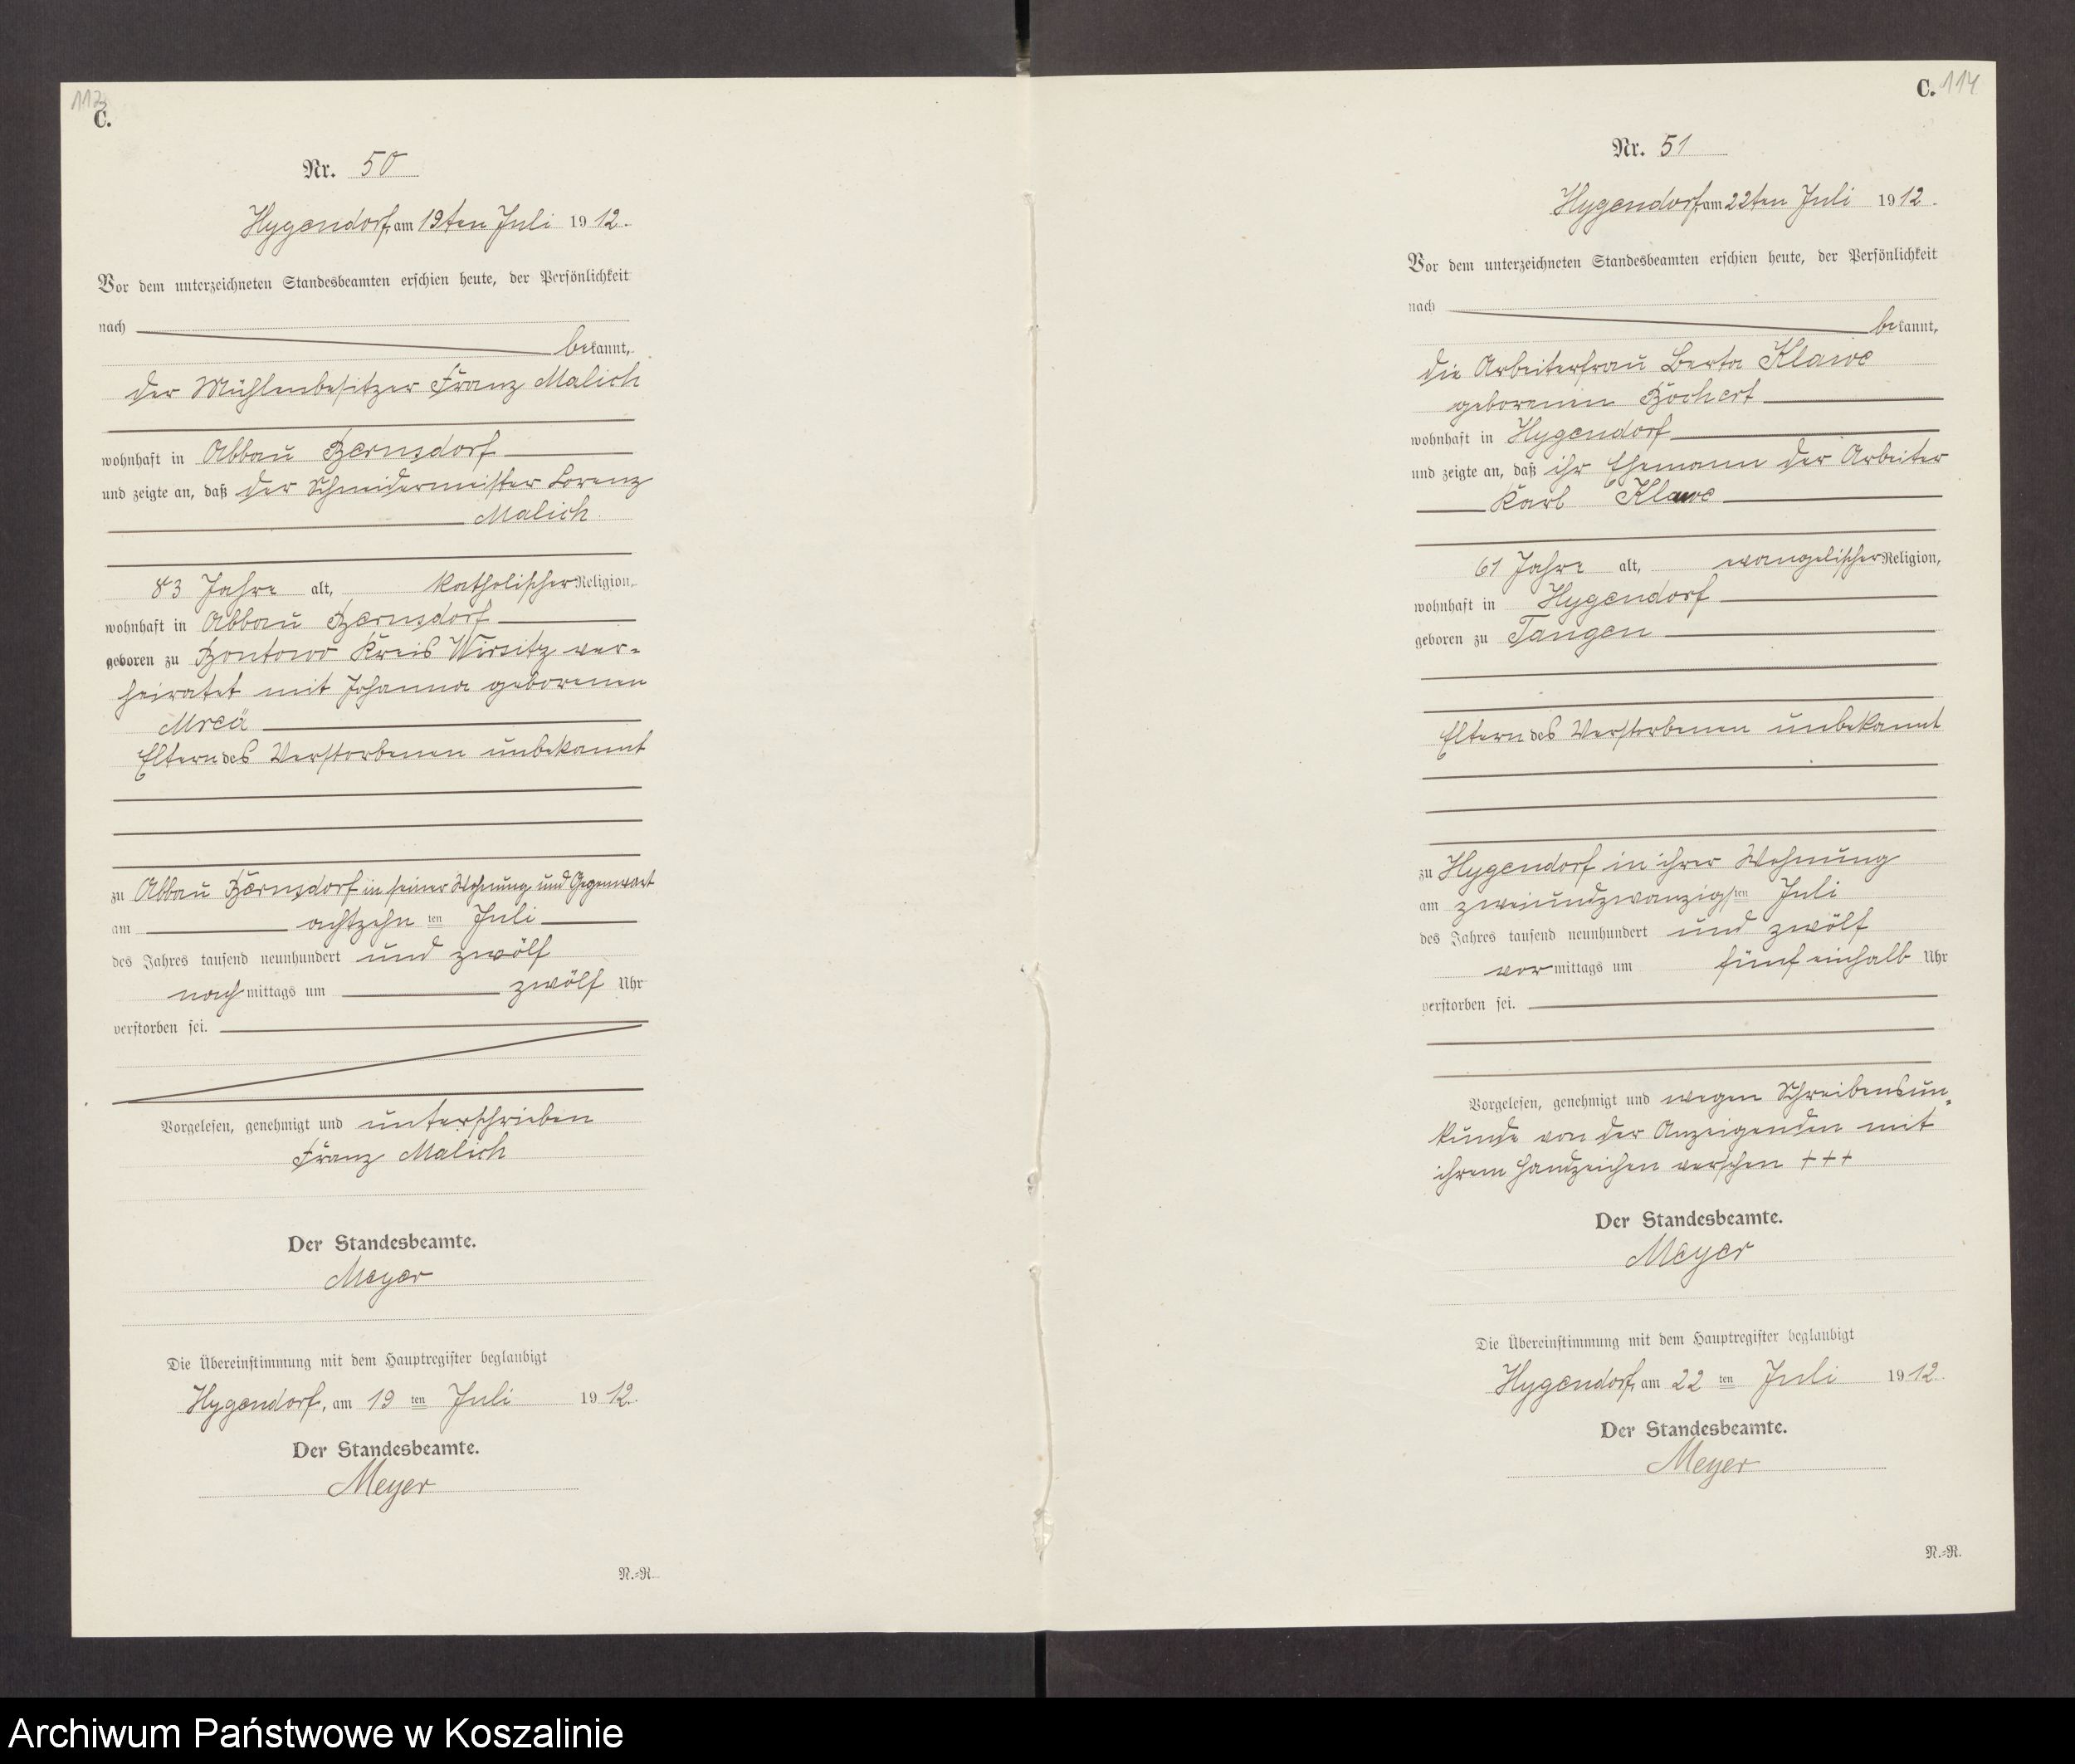 113
C.
Nr. 50
Hygendorf, am 19ten Juli 1912.
Vor dem unterzeichneten Standesbeamten erschien heute, der Persönlichkeit
nach
bekannt,
der Mühlenbesitzer Franz Malich
wohnhaft in Abbau Bernsdorf
und zeigte an, daß der Schneidermeister Lorenz
Malich
83 Jahre alt, katholischer Religion,
wohnhaft in Abbau Bernsdorf
geboren zu Bontowo Kreis Wirsitz ver-
heiratet mit Johanna geborenen
Mrcä
Eltern des Verstorbenen unbekannt
zu Abbau Bernsdorf in seiner Wohnung und Gegenwart
am achtzehn ten Juli
des Jahres tausend neunhundert und zwölf
nach mittags um zwölf Uhr
verstorben sei.
Vorgelesen, genehmigt und unterschrieben
Franz Malich
Der Standesbeamte.
Meyer
Die Übereinstimmung mit dem Hauptregister beglaubigt
Hygendorf, am 19 ten Juli 1912.
Der Standesbeamte.
Meyer
N.=R.
C. 114
Nr. 51
Hygendorf, am 22ten Juli 1912.
Vor dem unterzeichneten Standesbeamten erschien heute, der Persönlichkeit
nach
bekannt,
die Arbeiterfrau Berta Klawe
geborenen Bochert
wohnhaft in Hygendorf
und zeigte an, daß ihr Ehemann der Arbeiter
Karl Klawe
61 Jahre alt, evangelischer Religion,
wohnhaft in Hygendorf
geboren zu Tangen
Eltern des Verstorbenen unbekannt
zu Hygendorf in ihrer Wohnung
am zweiundzwanzigsten Juli
des Jahres tausend neunhundert und zwölf
vor mittags um fünf einhalb Uhr
verstorben sei.
Vorgelesen, genehmigt und wegen Schreibensun-
kunde von der Anzeigenden mit
ihrem Handzeichen versehen +++
Der Standesbeamte.
Meyer
Die Übereinstimmung mit dem Hauptregister beglaubigt
Hygendorf, am 22 ten Juli 1912.
Der Standesbeamte.
Meyer
N.=R.
Archiwum Państwowe w Koszalinie